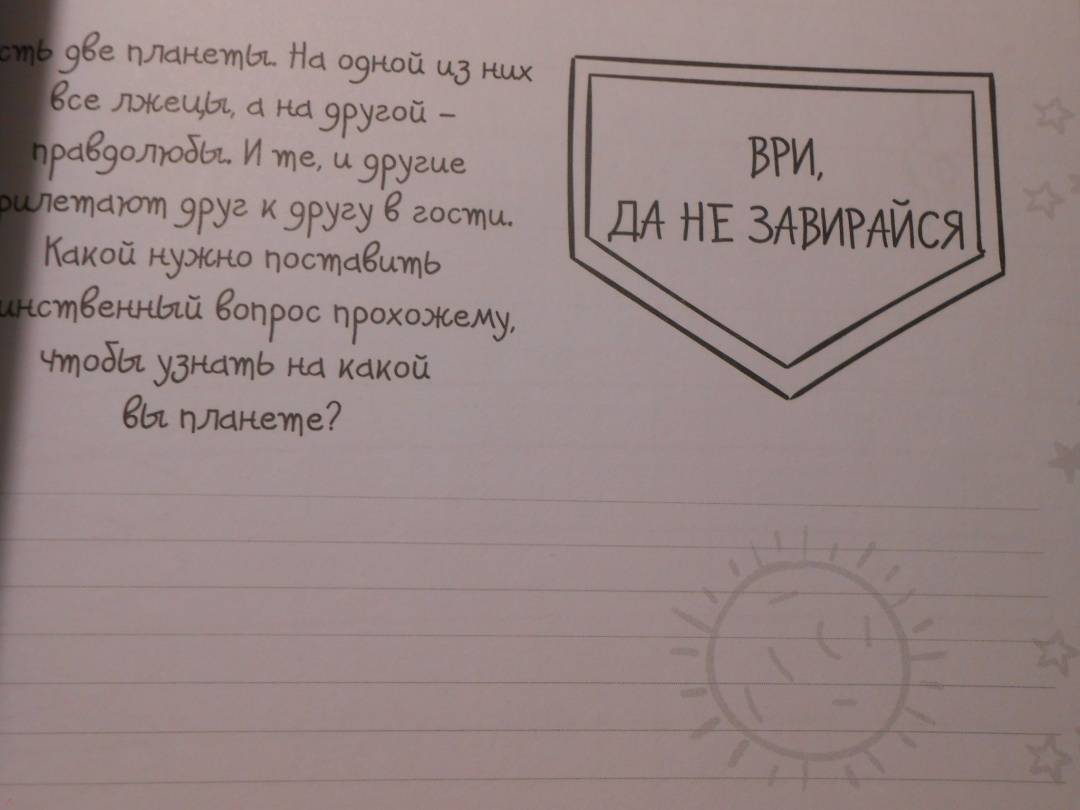 сть две планеты. На одной из них
все лжецы, а на другой –
правдолюбы. И те, и другие
рилетают друг к другу в гости.
Какой нужно поставить
инственный вопрос прохожему,
чтобы узнать на какой
вы планете?
ВРИ,
ДА НЕ ЗАВИРАЙСЯ